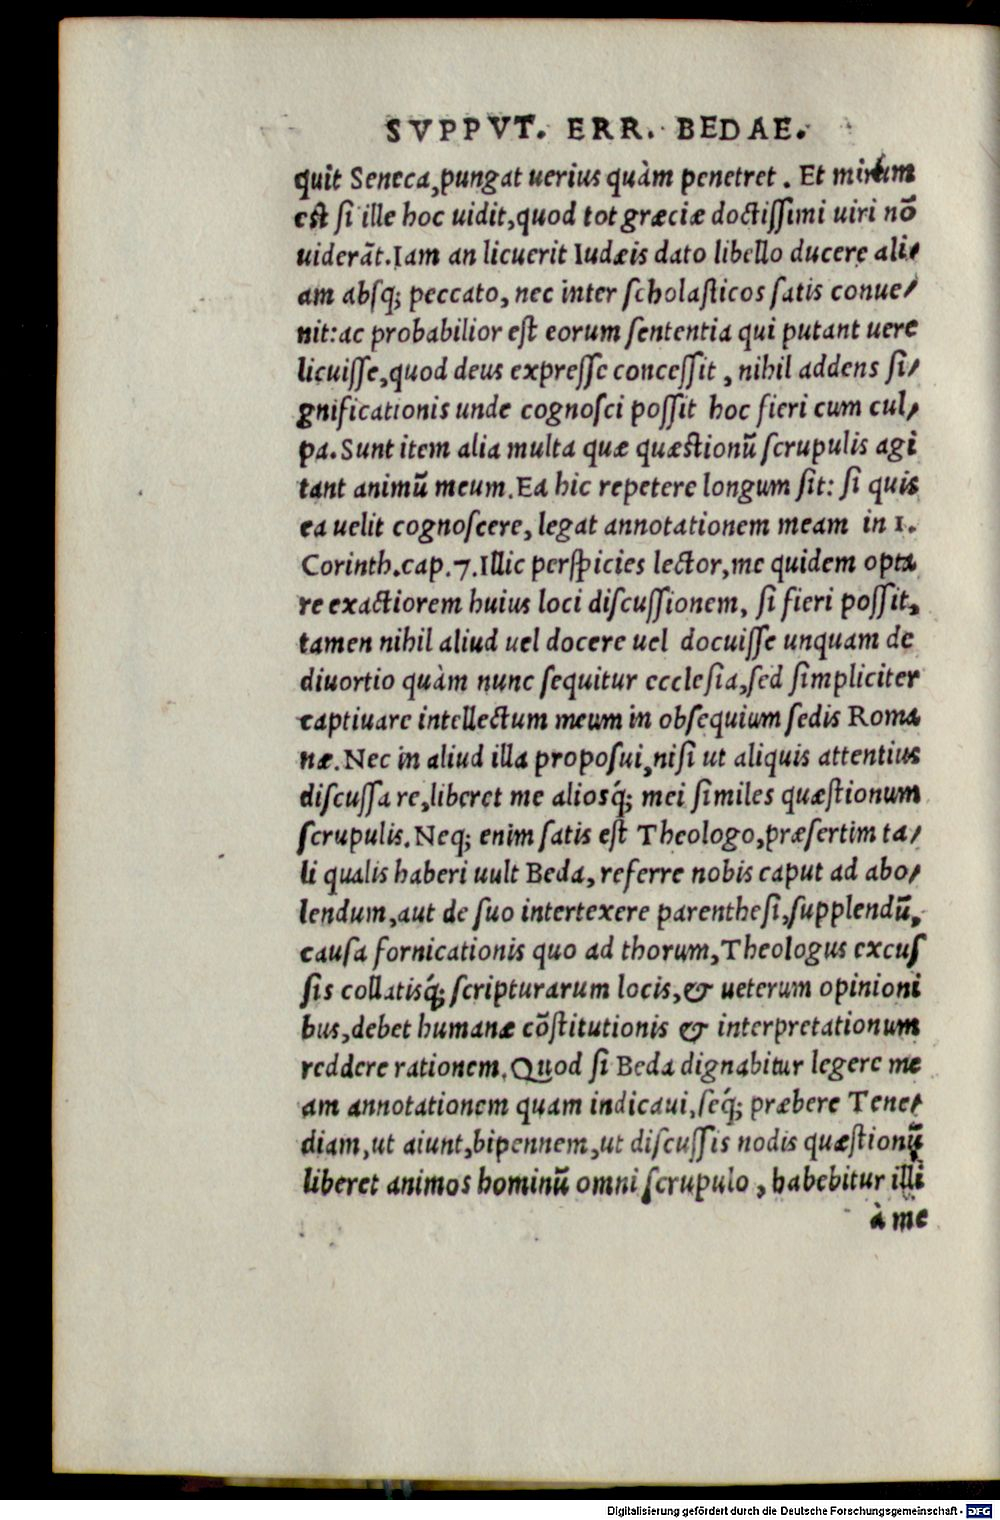 SVPPVT. ERR. BEDAE.
quit Seneca, pungat uerius quàm penetret. Et mirum
est si ille hoc uidit, quod tot græciæ doctissimi uiri nō
uiderāt. Iam an licuerit Iudæis dato libello ducere ali⸗
am absq; peccato, nec inter scholasticos satis conue⸗
nit: ac probabilior est eorum sententia qui putant uere
licuisse, quod deus expresse concessit, nihil addens si⸗
gnificationis unde cognosci possit hoc fieri cum cul⸗
pa. Sunt item alia multa quæ quæstionū scrupulis agi
tant animū meum. Ea hic repetere longum sit: si quis
ea uelit cognoscere, legat annotationem meam in 1.
Corinth. cap. 7. Illic perspicies lector, me quidem opta
re exactiorem huius loci discussionem, si fieri possit,
tamen nihil aliud uel docere uel docuisse unquam de
diuortio quàm nunc sequitur ecclesia, sed simpliciter
captiuare intellectum meum in obsequium sedis Roma
næ. Nec in aliud illa proposui, nisi ut aliquis attentius
discussa re, liberet me aliosq́; mei similes quæstionum
scrupulis. Neq; enim satis est Theologo, præsertim ta⸗
li qualis haberi uult Beda, referre nobis caput ad abo⸗
lendum, aut de suo intertexere parenthesi, supplendū,
causa fornicationis quo ad thorum, Theologus excus
sis collatisq́; scripturarum locis, & ueterum opinioni
bus, debet humanæ cōstitutionis & interpretationum
reddere rationem. Quod si Beda dignabitur legere me
am annotationem quam indicaui, seq́; præbere Tene⸗
diam, ut aiunt, bipennem, ut discussis nodis quæstionū
liberet animos hominū omni scrupulo, habebitur illi
à me
Digitalisierung gefördert durch die Deutsche Forschungsgemeinschaft - DFG